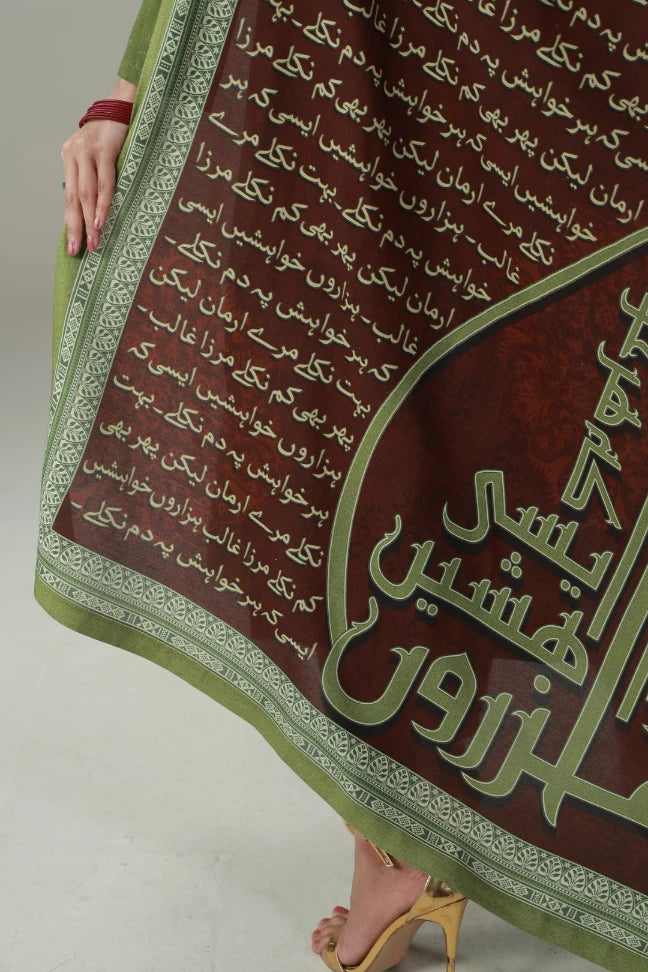 پہ دم نکلے
بھی کم نکلے مرزا غالب
کہ ہر خواہش پہ دم نکلے۔
ارمان لیکن پھر بھی کم نکلے مرزا غالب
خواہشیں ایسی کہ ہر خواہش پہ دم نکلے۔ بہت
نکلے مرے ارمان لیکن پھر بھی کم نکلے مرزا
غالب۔ ہزاروں خواہشیں ایسی کہ ہر
خواہش پہ دم نکلے۔ بہت نکلے مرے
ارمان لیکن پھر بھی کم نکلے مرزا
غالب۔ ہزاروں خواہشیں ایسی
کہ ہر خواہش پہ دم نکلے۔
بہت نکلے مرے ارمان لیکن
پھر بھی کم نکلے مرزا غالب۔
ہزاروں خواہشیں ایسی کہ
ہر خواہش پہ دم نکلے۔ بہت
نکلے مرے ارمان لیکن پھر بھی
کم نکلے مرزا غالب ہزاروں خواہشیں
ایسی کہ ہر خواہش پہ دم نکلے۔
یسی
ہشیں
ہزروں